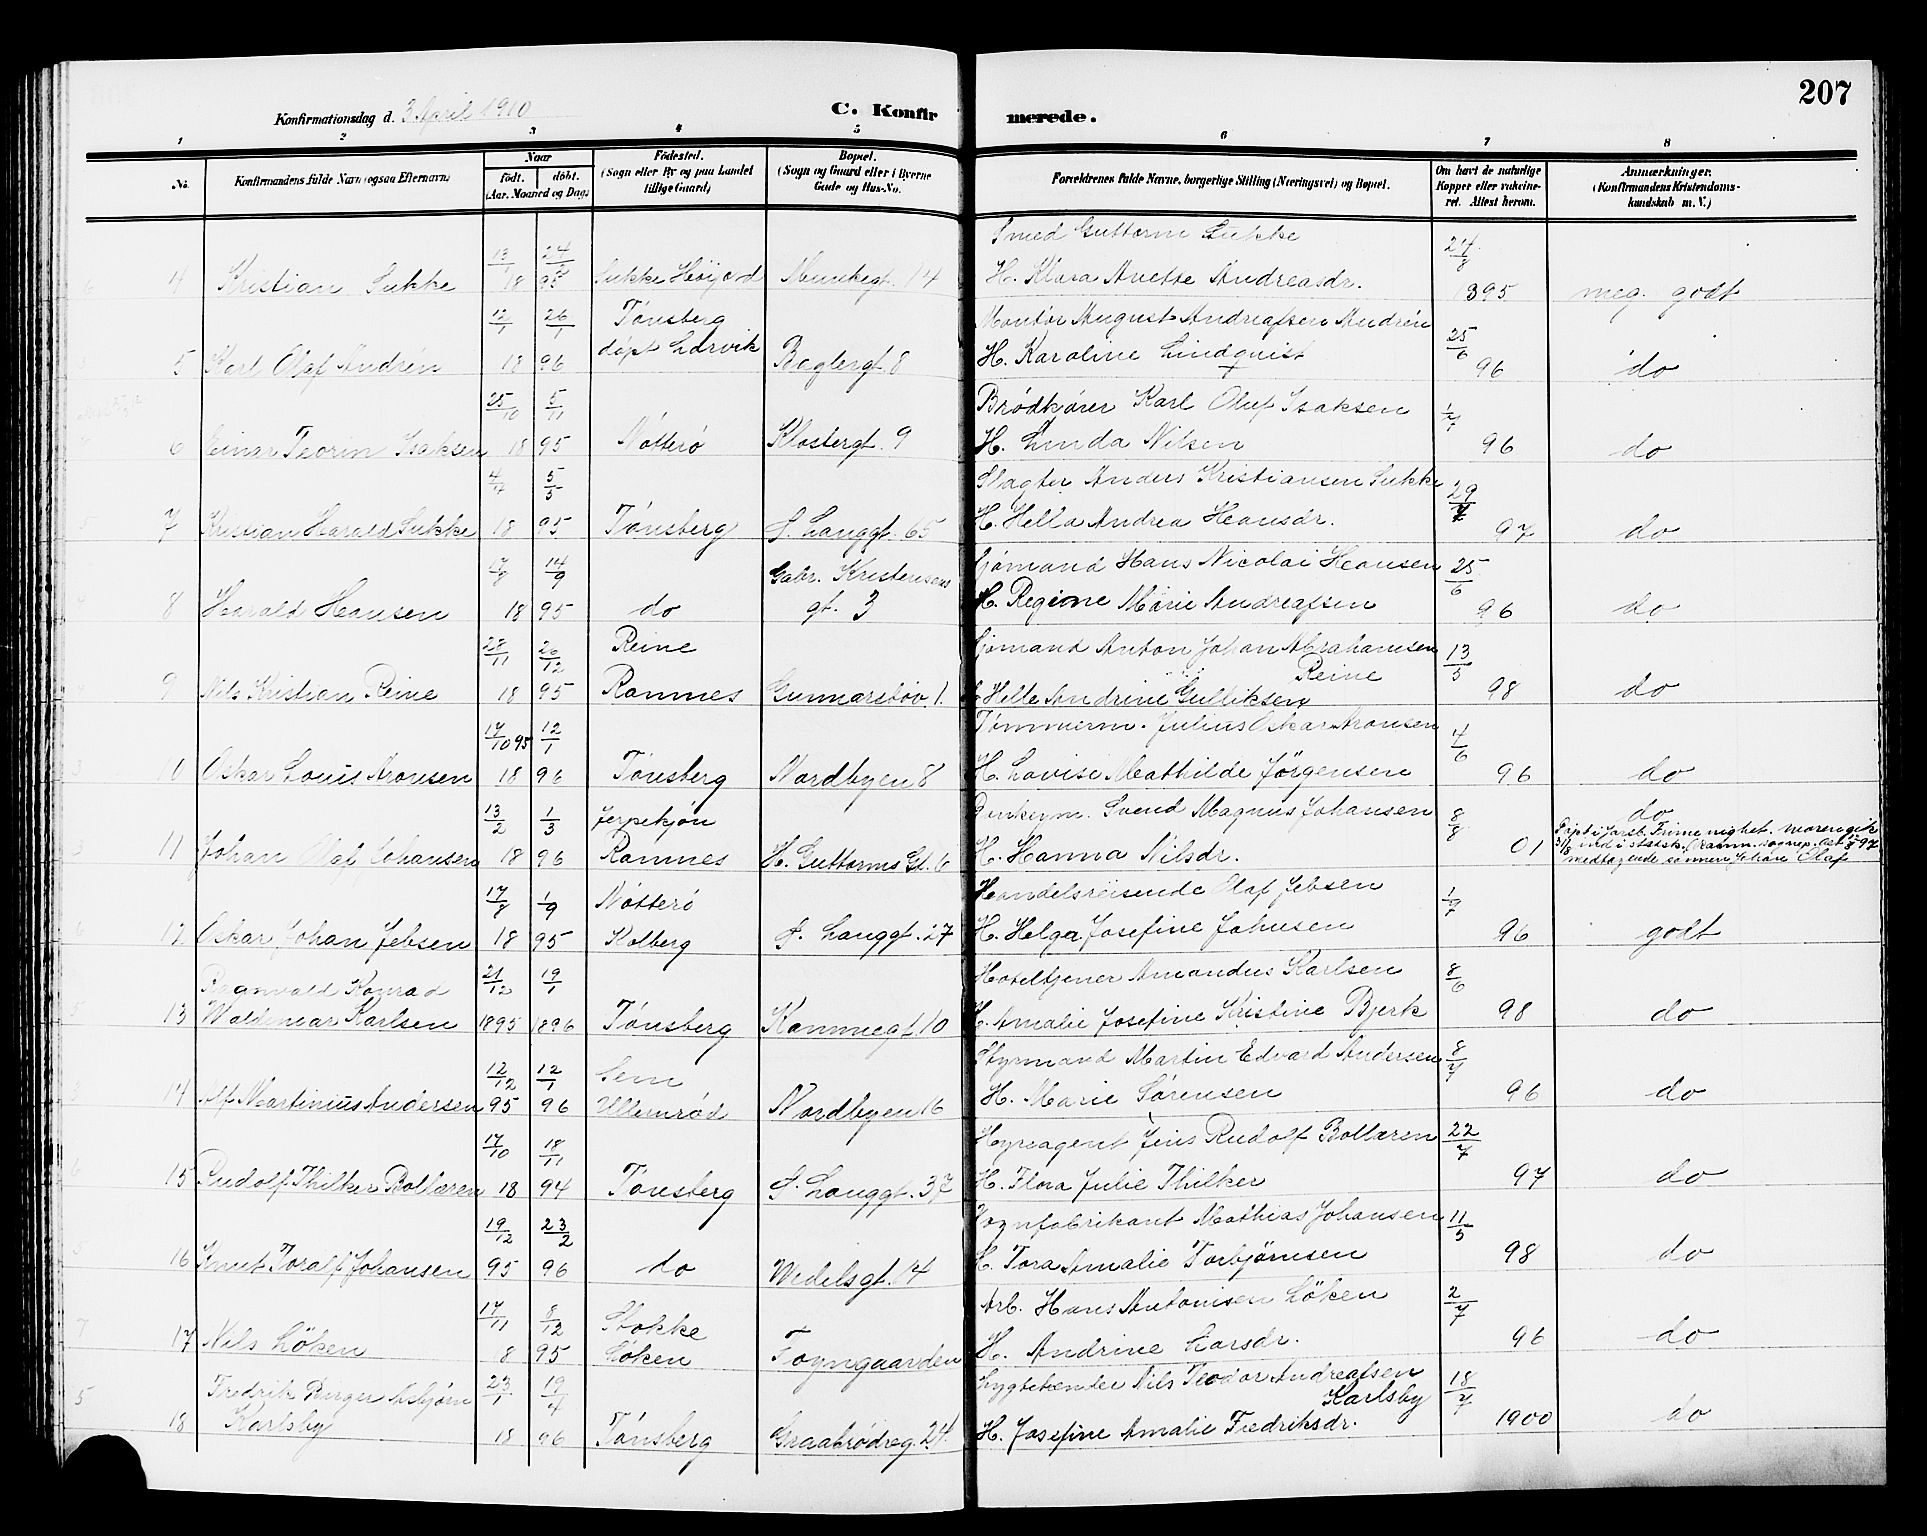 207
Konfirmationsdag d. 3 April 1910
C. Konfirmerede.
1 2 3 4 5 6 7 8
No. | Konfirmandens fulde Navn (ogsaa Efternavn) | Naar født. døbt. (Aar, Maaned og Dag) | Fødested. (Sogn eller By og paa Landet tillige Gaard) | Bopæl. (Sogn og Gaard eller i Byerne Gade og Hus-No. | Forældrenes fulde Navne, borgerlige Stilling (Næringsvei) og Bopæl. | Om havt de naturlige Kopper eller vakcineret. Attest herom. | Anmærkninger. (Konfirmandens Kristendomskundskab m. V.)
13/1 24/ Smed Guttorm Sukke 24/8
4 Kristian Sukke 18 95 Sukke Høijord Munkegt. 14 H. Klara Anette Andreasdr. 1895 meg. godt
12/1 26/1 Tønsberg Montør August Andreassen Andrén 25/6
5 Karl Olaf Andrén 18 96 døpt Larvik Baglergt. 8 H. Karoline Lindquist 96 do
25/10 5/11 Brødkjører Karl Oluf Isaksen 1/7
6 Einar Teorin Isaksen 18 95 Nøtterø Klostergt. 9 H. Linda Nilsen 96 do
4/ 5/5 Slagter Anders Kristiansen Sukke 29/
7 Kristian Harald Sukke 18 95 Tønsberg S. Langgt. 65 H. Hella Andrea Hansdr. 97 do
17/8 14/9 Gabr. Kristensens Sjømand Hans Nicolai Hansen 25/6
8 Harald Hansen 18 95 do gt. 3 H. Regine Marie Andreassen 96 do
28/11 26/12 Reine Sjømand Anton Johan Abrahamsen Reine 13/5
9 Nils Kristian Reine 18 95 Ramnes Gunnarsbøv 1. H. Helle Andrine Gulliksen 98 do
17/10 95 12/1 Tømmerm. Julius Oskar Aronsen 4/6
10 Oskar Louis Aronsen 18 96 Tønsberg Nordbyen 8 H. Lovise Mathilde Jørgensen 96 do
13/2 1/3 Jerpekjøn Svend Magnus Johansen 8/8 do
11 Johan Olaf Johansen 18 96 Ramnes H. Guttorms Gt. 6 H. Hanna Nilsdr. 01
medtagende sønnen Johan Olaf
17/8 1/9 Nøtterø Handelsreisende Olaf Jebsen 1/7
12 Oskar Johan Jebsen 18 95 Kolberg S. Langgt. 27 H. Helga Josefine Johnsen 96 godt
Ragnvald Konrad 21/12 19/1 Hoteltjener Amandus Karlsen 8/6
13 Waldemar Karlsen 1895 1896 Tønsberg Kammegt 10 H. Amalie Josefine Kristine Bjerk 98 do
12/12 12/1 Sem Styrmand Martin Edvard Andersen 8/7
14 Alf Martinius Andersen 95 96 Ullemrød Nordbyen 16 H. Marie Sørensen 96 do
17/10 18/11 Hyreagent Jens Rudolf Bollæren 22/7
15 Rudolf Thilker Bollæren 18 94 Tønsberg S. Langgt. 37 H. Flora Julie Thilker 97 do
19/12 23/2 Vognfabrikant Mathias Johansen 11/5
16 Knut Toralf Johansen 95 96 do Wedelsgt. 14 H. Tora Amalie Torbjørnsen 98 do
17/11 8/12 Stokke Arb. Hans Antonisen Løken 2/7
17 Nils Løken 8 95 Løken Føyngaarden H. Andrine Larsdr. 96 do
Fredrik Birger Asbjørn 23/1 19/4 Lygtetænder Nils Teodor Andreassen Karlsby 18/7
18 Karlsby 18 96 Tønsberg Graabrødreg. 24. H. Josefine Amalie Fredriksdr. 1900 do